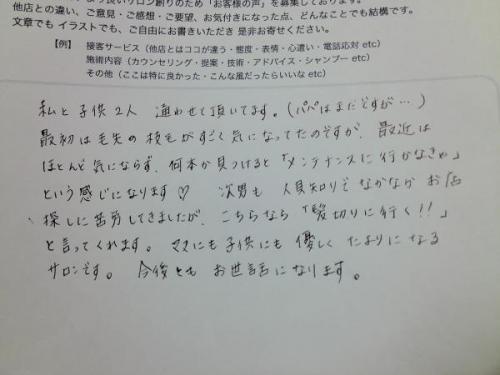 より良いサロン創りのため「お客様の声」を募集しております。
他店との違い、ご意見・ご感想・ご要望、お気付きになった点、どんなことでも結構です。
文章でも イラストでも、ご自由にお書きいただき 是非お寄せください。
【例】 接客サービス（他店とはココが違う・態度・表情・心遣い・電話応対 etc）
施術内容（カウンセリング・提案・技術・アドバイス・シャンプー etc）
その他（ここは特に良かった・こんな風だったらいいな etc）
私と子供2人 通わせて頂いてます。（パパはまだですが…）
最初は毛先の枝毛がすごく気になってたのですが、最近は
ほとんど気にならず、何本か見つけると「メンテナンスに行かなきゃ」
という感じになります♡ 次男も 人見知りで なかなか お店
探しに苦労してきましたが、こちらなら「髪切りに行く!!」
と言ってくれます。ママにも子供にも 優しく たよりになる
サロンです。 今後とも お世話になります。